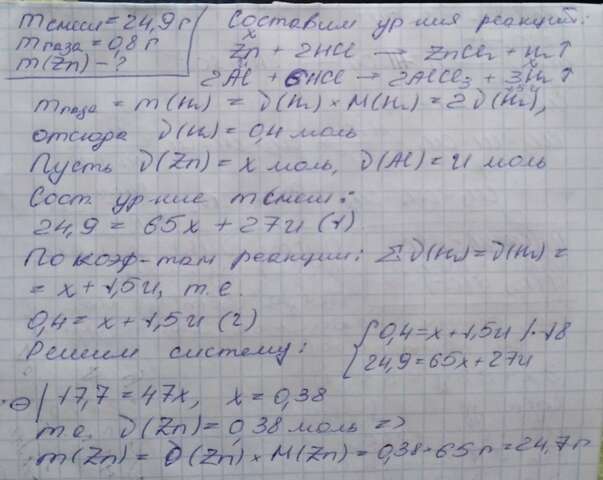 m смеси = 24,9 г
m газа = 0,8 г
m(Zn) - ?
Составим ур-ния реакций:
x
Zn + 2HCl → ZnCl₂ + H₂↑
2Al + 6HCl → 2AlCl₃ + 3H₂↑
m газа = m(H₂) = ∂(H₂) × M(H₂) = 2∂(H₂),
отсюда ∂(H₂) = 0,4 моль
Пусть ∂(Zn) = x моль, ∂(Al) = y моль
Сост. ур-ние m смеси:
24,9 = 65x + 27y (1)
По коэф-там реакции: Σ∂(H₂) = ∂(H₂) =
= x + 1,5y, т.е.
0,4 = x + 1,5y (2)
Решим систему: { 0,4 = x + 1,5y | · 18
24,9 = 65x + 27y
⊖ | 17,7 = 47x, x = 0,38
т.е. ∂(Zn) = 0,38 моль =>
m(Zn) = ∂(Zn) × M(Zn) = 0,38 · 65 г = 24,7 г